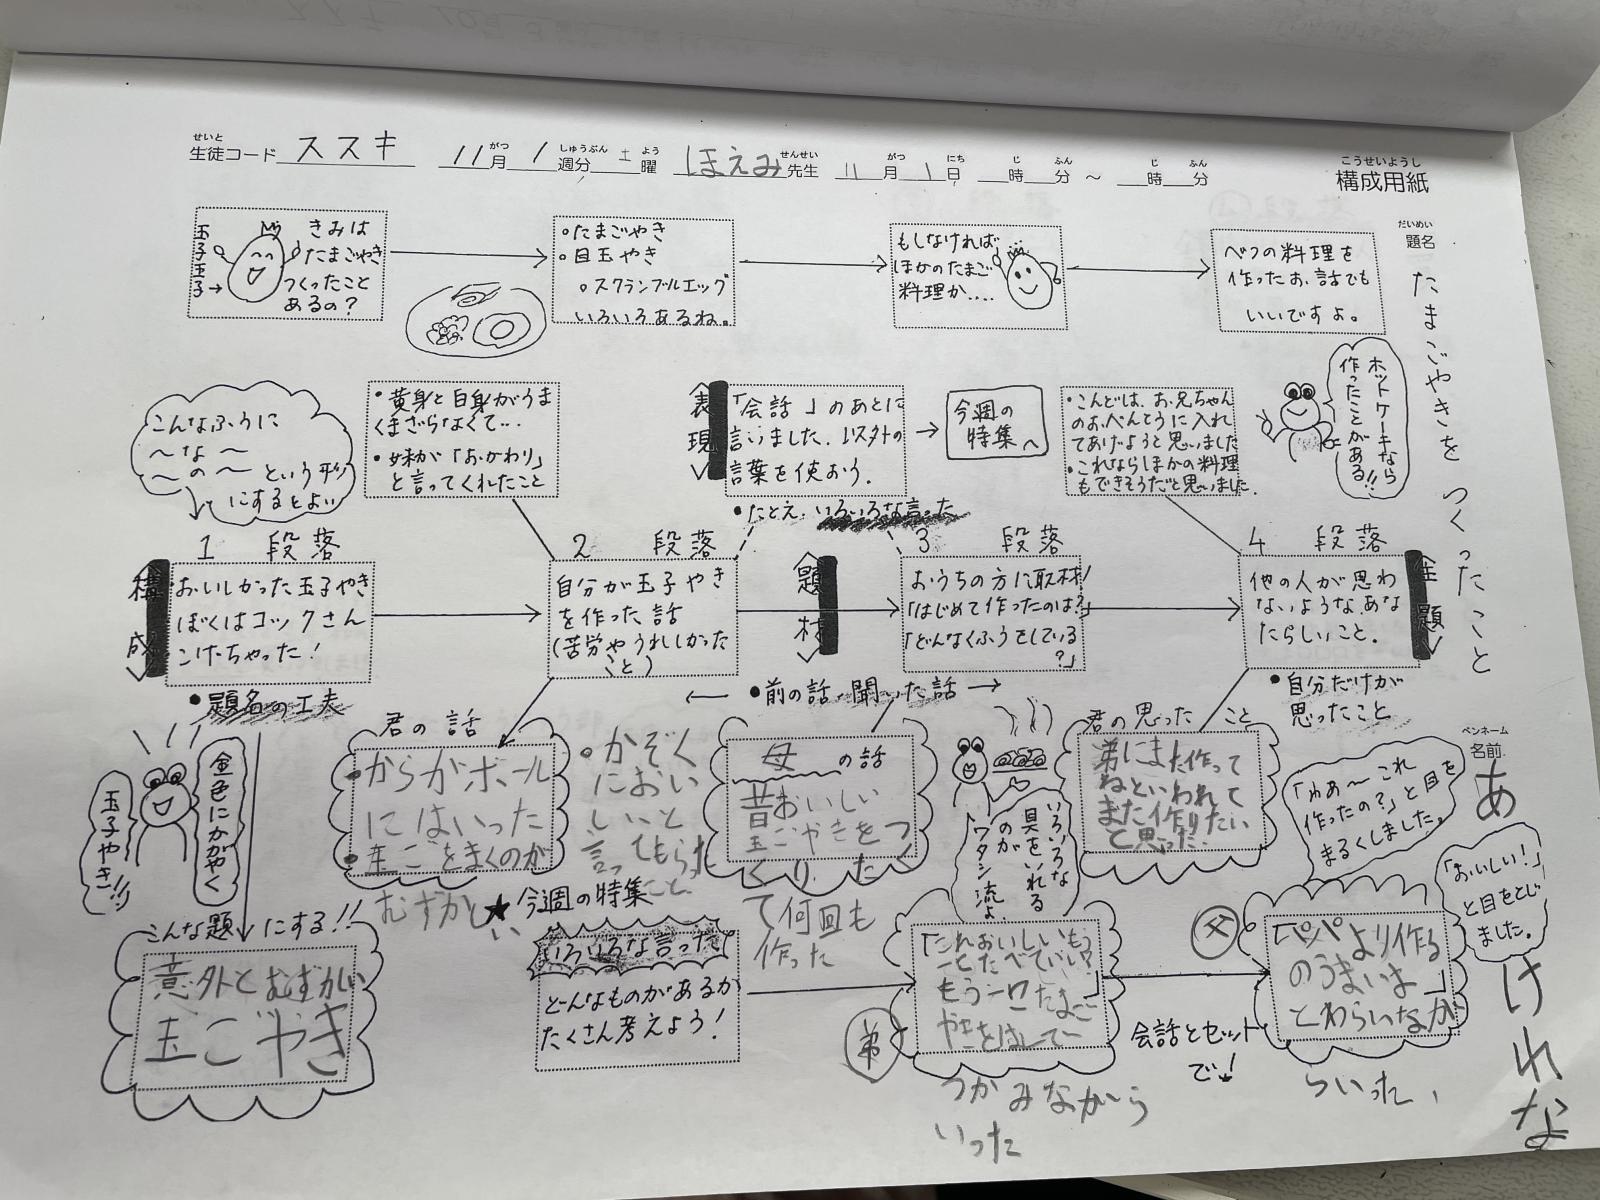 せいと
生徒コード ススキ 11月 1週分 土曜 ほえみ先生 11月 1日 時 分 〜 時 分
がつ しゅうぶん よう せんせい がつ にち じ ふん じ ふん
こうせいようし
構成用紙
だいめい
題名
たまごやきを つくったこと
玉子王子→
きみは
たまごやき
つくったこと
あるの?
・たまごやき
・目玉やき
・スクランブルエッグ
いろいろあるね。
もしなければ
ほかのたまご
料理か....
べつの料理を
作ったお話でも
いいですよ。
ホットケーキなら
作ったことがある!!
こんなふうに
〜な〜
〜の〜という形
にするとよい
・黄身と白身がうま
くまざらなくて...
・妹が「おかわり」
と言ってくれたこと
表現
「会話」のあとに
言いました.以外の
言葉を使おう.
・たとえ.いろいろな言った
今週の
特集へ
・こんどは、お兄ちゃん
のおべんとうに入れ
てあげようと思いました
・これならほかの料理
もできそうだと思いました.
1 段落
構成
おいしかった玉子やき
ぼくはコックさん
こげちゃった!
・題名の工夫
2 段落
自分が玉子やき
を作った話
(苦労やうれしかった
こと)
題材
3 段落
おうちの方に取材!
「はじめて作ったのは?」
「どんなくふうをしている
?」
← ・前の話・聞いた話 →
4 段落
他の人が思わ
ないような、あな
たらしいこと.
主題
・自分だけが
思ったこと
金色にかがやく
玉子やき!!
君の話
・からがボール
にはいった
・玉ごをまくのが
むずかしい
・かぞく
においし
しいと
言ってもらった
こと
母の話
昔おいしい
玉ごやきをつ
くりたく
て何回も
作った
いろいろな
具をいれる
のが
ワタシ流よ
君の思ったこと
弟にまた作って
ねといわれて
また作りたい
と思った.
ペンネーム
名前
あけれな
「わあ〜これ
作ったの?」と目を
まるくしました。
「おいしい!」
と目をとじ
ました。
こんな題にする!!
意外とむずかしい
玉ごやき
★今週の特集
いろいろな言った
どんなものがあるか
たくさん考えよう!
弟
「これおいしいもう
一ことたべていい?
もう一口」たまご
やきをはしで
つかみながら
いった
会話とセット
で!
父
「パパより作る
のうまいな」
とわらいなが
らいった.